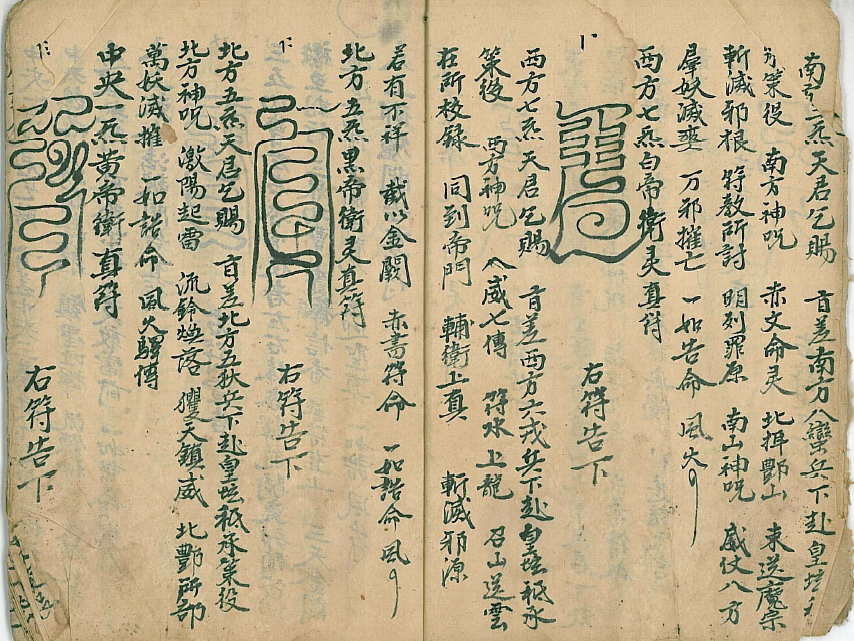 南方三炁天君乞賜 肓差南方八蠻兵下赴皇坛
策役 南方神咒 赤文命灵 北揖酆山 束送魔宗
斬滅邪根 符教所討 明列罪原 南山神咒 威仗八方
羣妖滅爽 万邪摧亡 一如告命 風火
西方七炁白帝衛灵真符
右符告下
西方七炁天君乞賜 肓差西方六戎兵下赴皇坛祗承
策役 西方神咒 八威七傳 符水上龍 召山送雲
在所校錄 同到帝門 輔衛上真 斬滅邪源
若有不祥 截以金闕 赤書符命 一如誥命 風
北方五炁黑帝衛灵真符
右符告下
北方五炁天君乞賜 肓差北方五狄兵下赴皇坛祗承策役
北方神咒 激陽起雷 流鈴煥落 玃天鎮威 北酆所部
萬妖滅摧 一如誥命 風火驛傳
中央一炁黃帝衛真符
右符告下